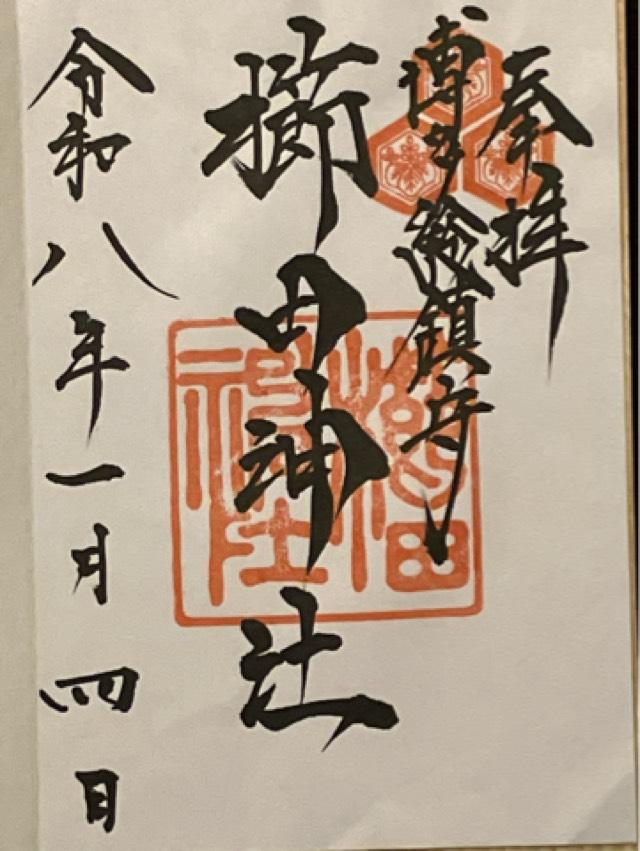 奉拝
博多総鎮守
櫛田神社
令和八年一月四日
櫛田神社